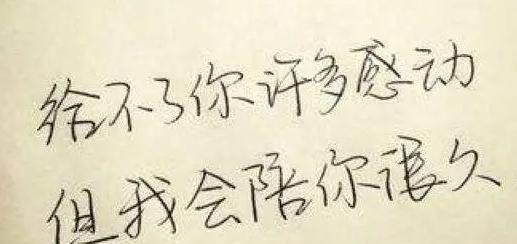 给不了你许多感动
但我会陪你很久